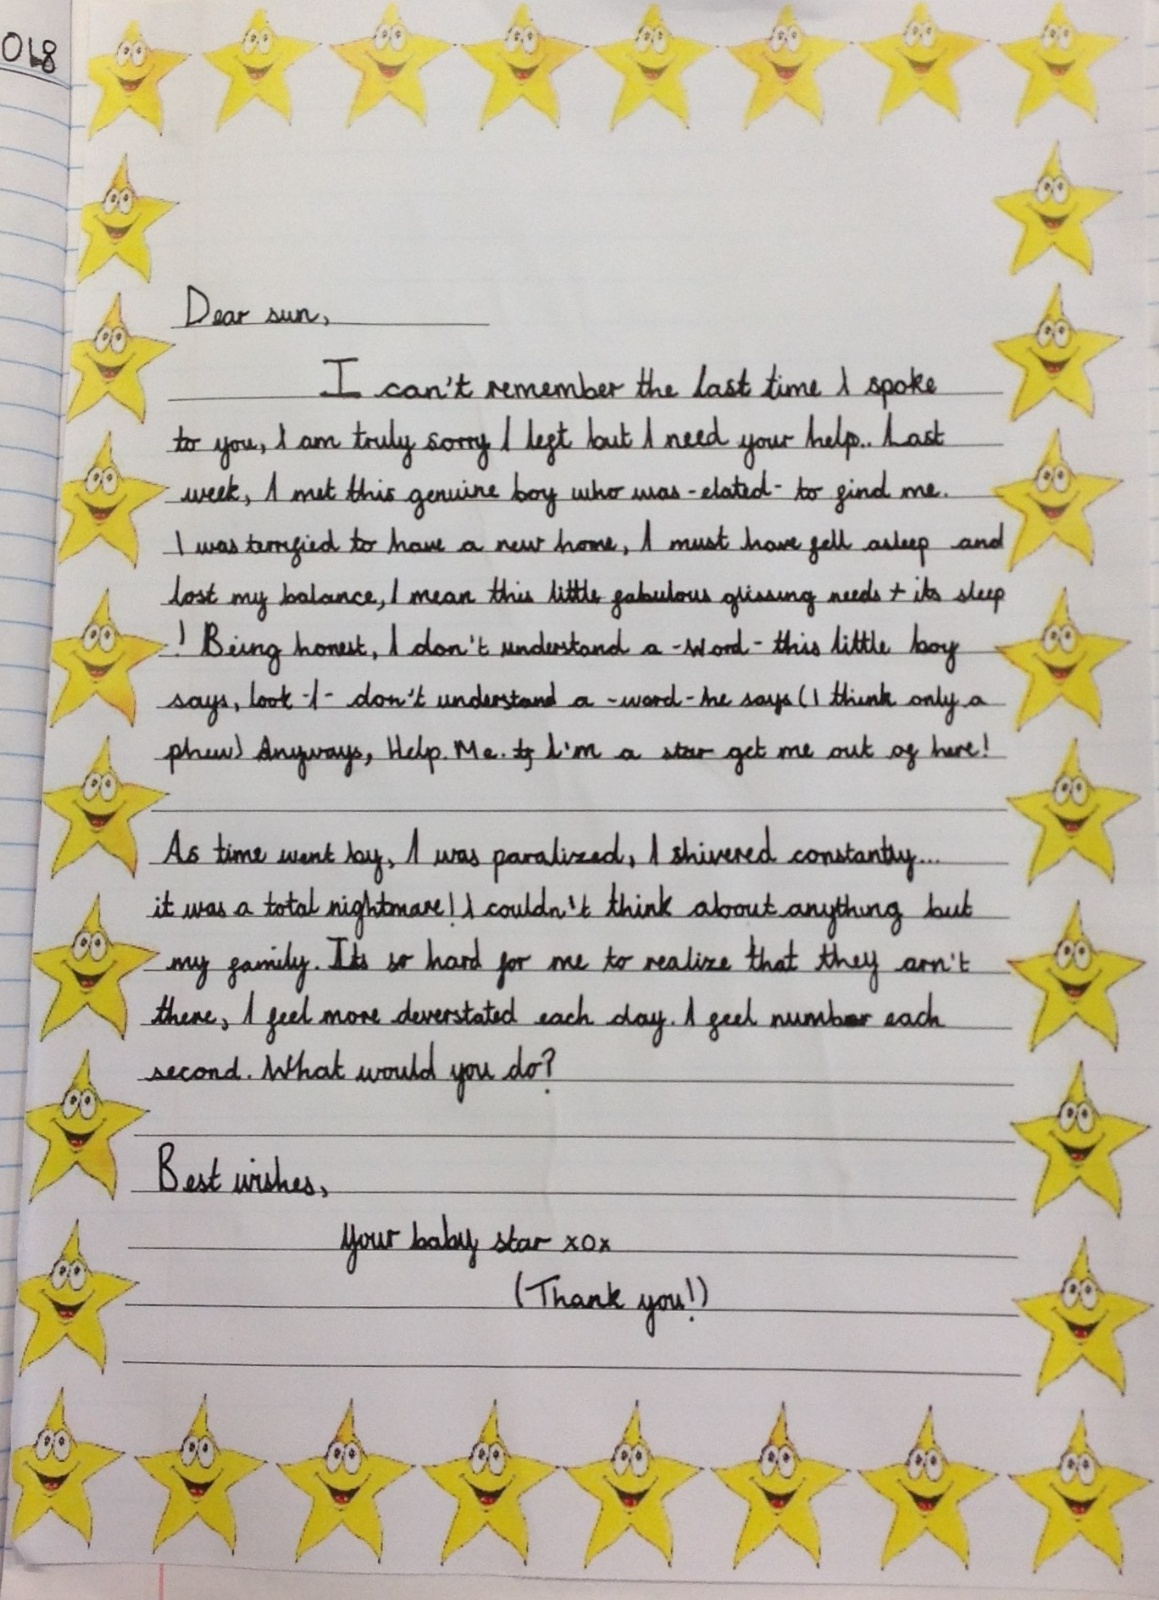 018
Dear sun,
I can't remember the last time I spoke
to you, I am truly sorry I left but I need your help.. Last
week, I met this genuine boy who was -elated- to find me.
I was terrified to have a new home, I must have fell asleep and
lost my balance, I mean this little fabulous glissing needs + its sleep
! Being honest, I don't understand a -Word- this little boy
says, look -I- don't understand a -word- he says (I think only a
phew) Anyways, Help. Me. I'm a star get me out of here!
As time went by, I was paralized, I shivered constantly...
it was a total nightmare! I couldn't think about anything but
my family. Its so hard for me to realize that they arn't
there, I feel more deverstated each day. I feel number each
second. What would you do?
Best wishes,
Your baby star xox
(Thank you!)